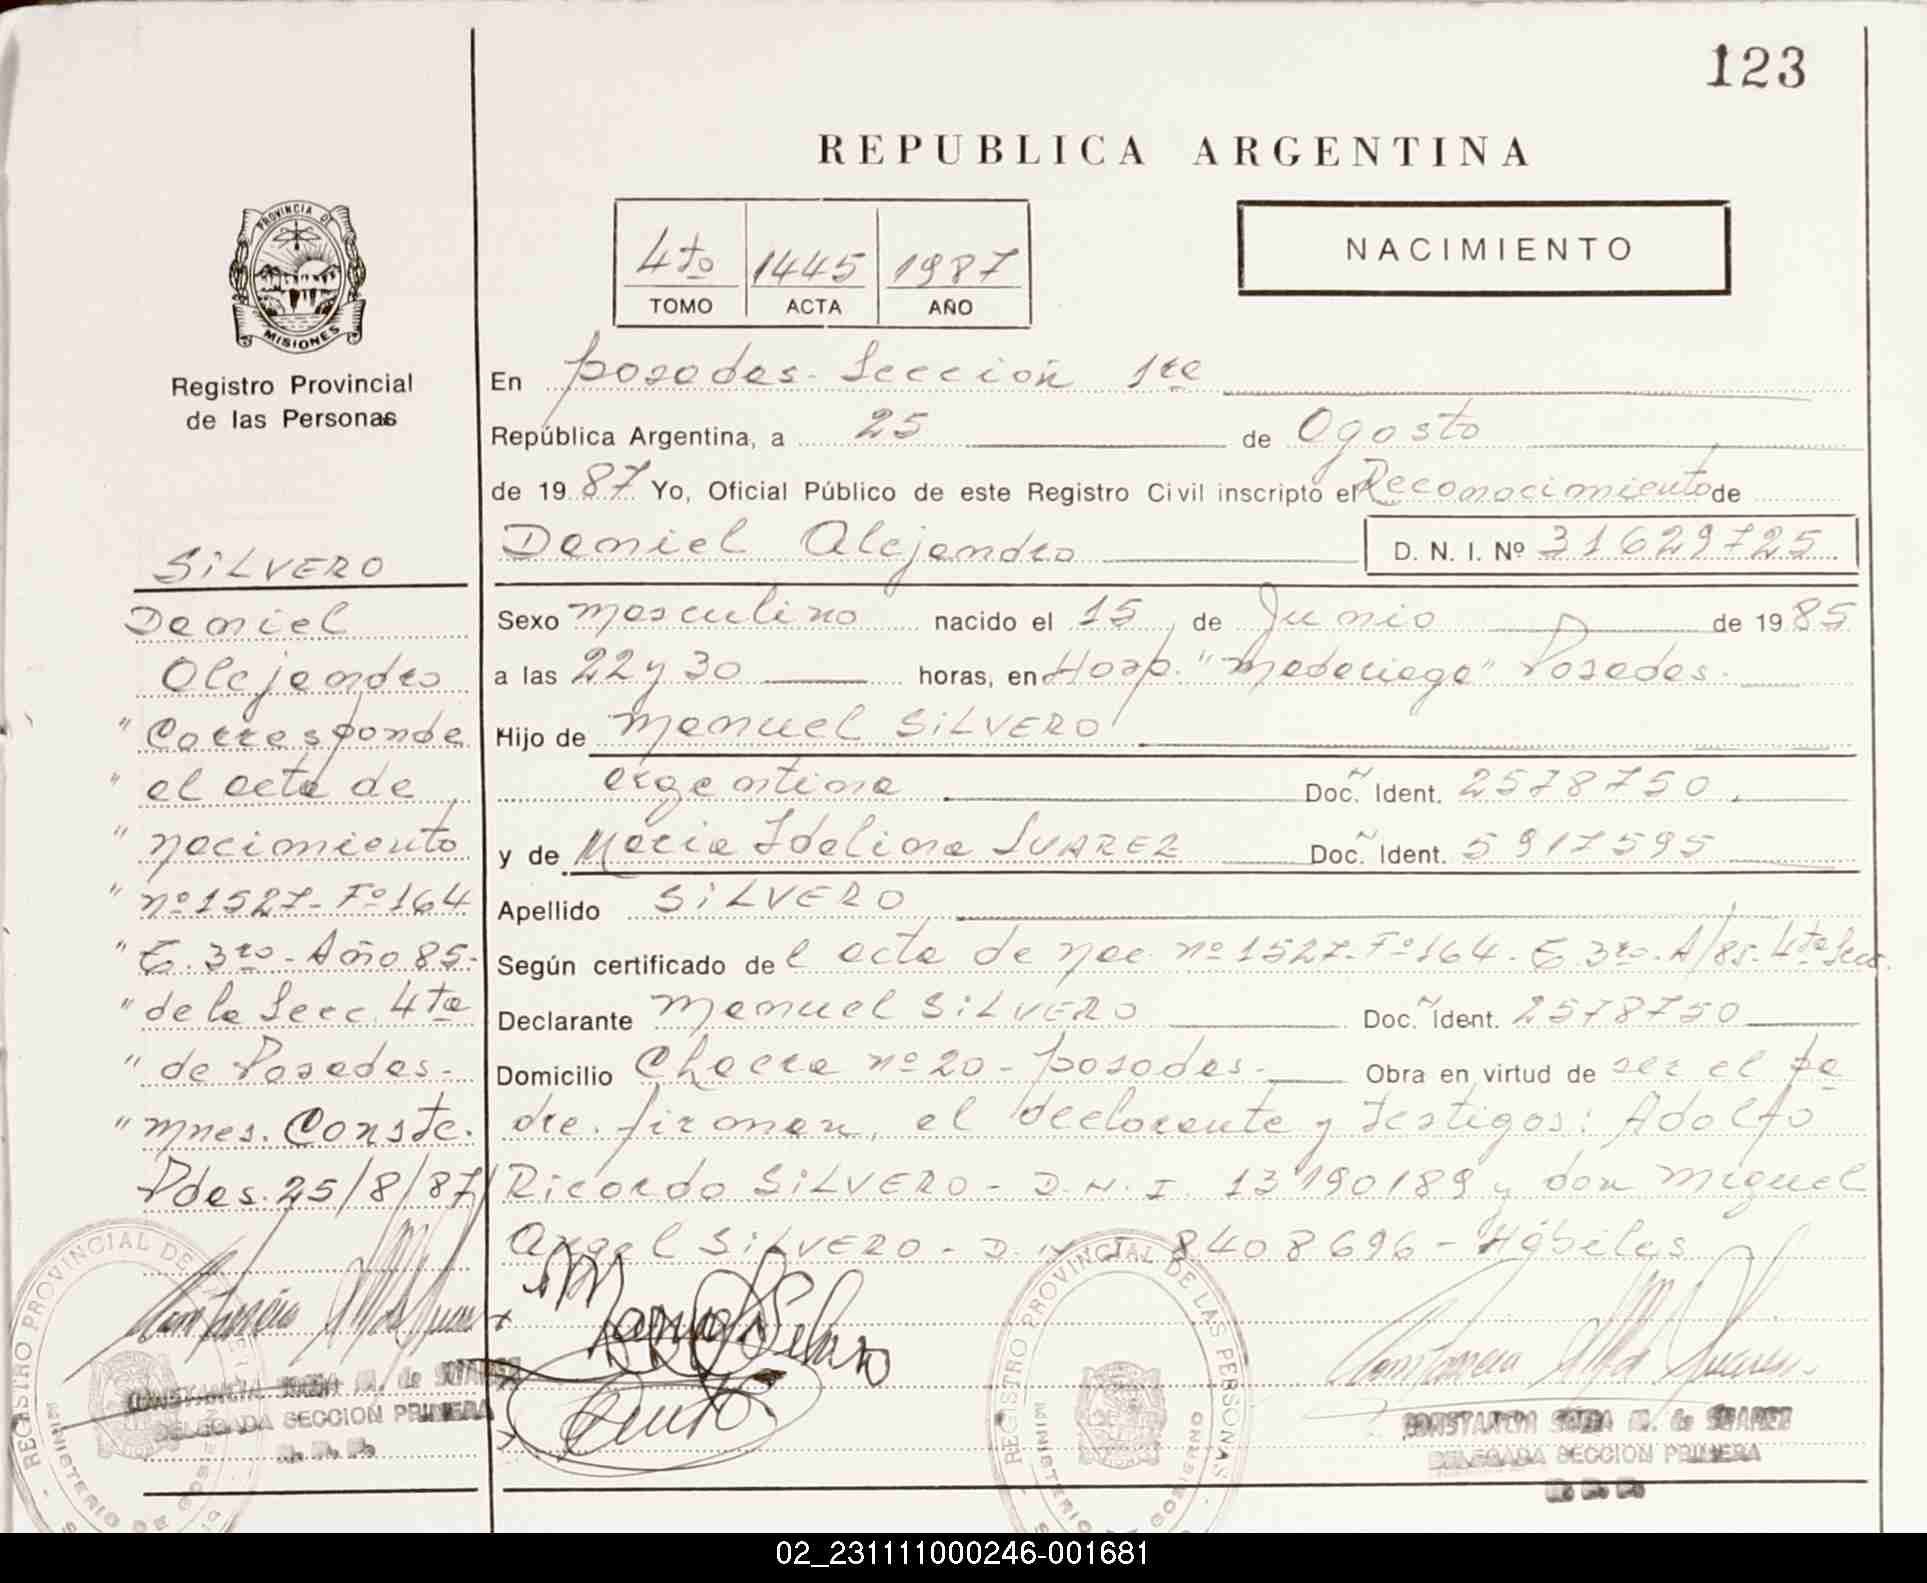 123
REPUBLICA ARGENTINA
4to 1445 1987
TOMO ACTA AÑO
NACIMIENTO
PROVINCIA DE
MISIONES
Registro Provincial
de las Personas
SILVERO
Daniel
Alejandro
"Corresponde
"el acta de
"nacimiento
"nº1527-Fº164
"T. 3ro-Año 85-
"de la Secc. 4ta
"de Posadas-
"Mnes. Conste.
Pdas. 25/8/87
CONSTANCIA M. de SUAREZ
DELEGADA SECCION PRIMERA
En Posadas-Sección 1ra
República Argentina, a 25 de Agosto
de 1987 Yo, Oficial Público de este Registro Civil inscripto el Reconocimiento de
Daniel Alejandro D. N. I. Nº 31629725
Sexo masculino nacido el 15 de Junio de 1985
a las 22 y 30 horas, en Hosp. "Madariaga" Posadas-
Hijo de Manuel SILVERO
argentina Doc. Ident. 2578750
y de Maria Idelina SUAREZ Doc. Ident. 5917595
Apellido SILVERO
Según certificado del acta de nac. nº1527-Fº164-T. 3ro-A/85-4ta Secc.
Declarante Manuel SILVERO Doc. Ident. 2578750
Domicilio Chacra nº20-Posadas- Obra en virtud de ser el pa
dre. firman, el declarante y testigos: Adolfo
Ricardo SILVERO-D.N.I. 13190189 y don Miguel
Angel SILVERO-D.N.I 8408696-Hábiles
REGISTRO PROVINCIAL DE LAS PERSONAS
MINISTERIO DE GOBIERNO
CONSTANCIA M. de SUAREZ
DELEGADA SECCION PRIMERA
02_231111000246-001681